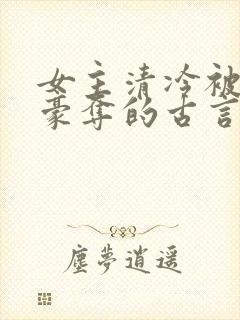 女主清冷被
豪夺的古言
尘夢逍遥